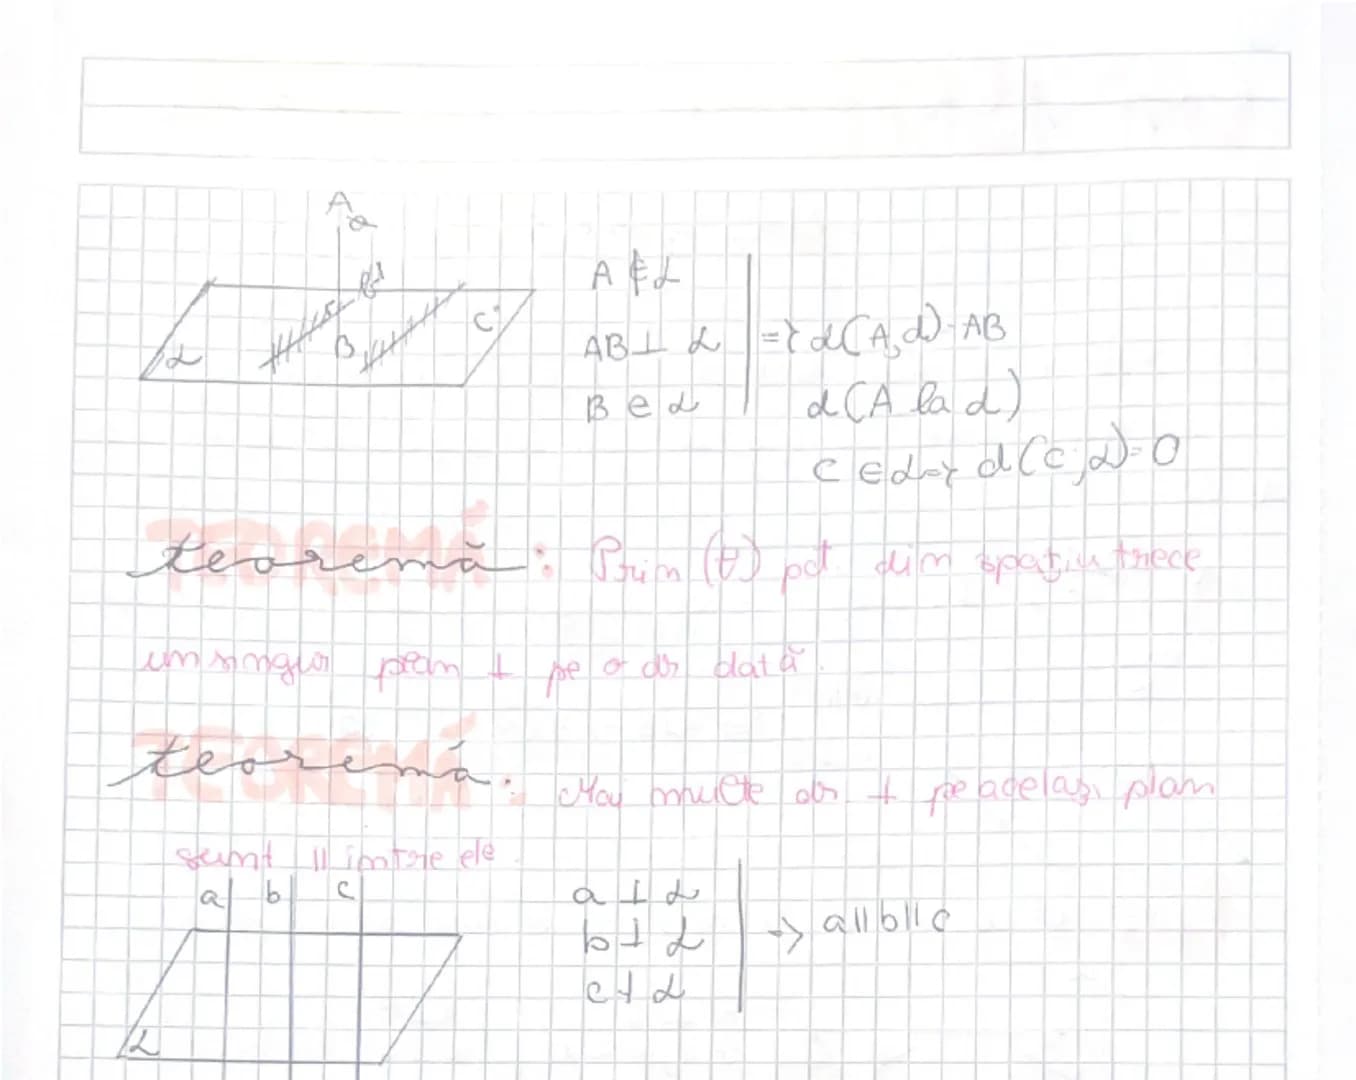 A
a
A ∉ α
AB ⊥ α => d(A,α) = AB
B ∈ α d(A la α)
C ∈ α => d(C,α) = 0
α B C
teoremă: Prin (∀) pct. din spațiu trece
un singur plan ⊥ pe o dr dată.
teoremă: Mai multe dr. ⊥ pe același plan
sunt || între ele
a b c
a ⊥ α
b ⊥ α => a||b||c
c ⊥ α
α